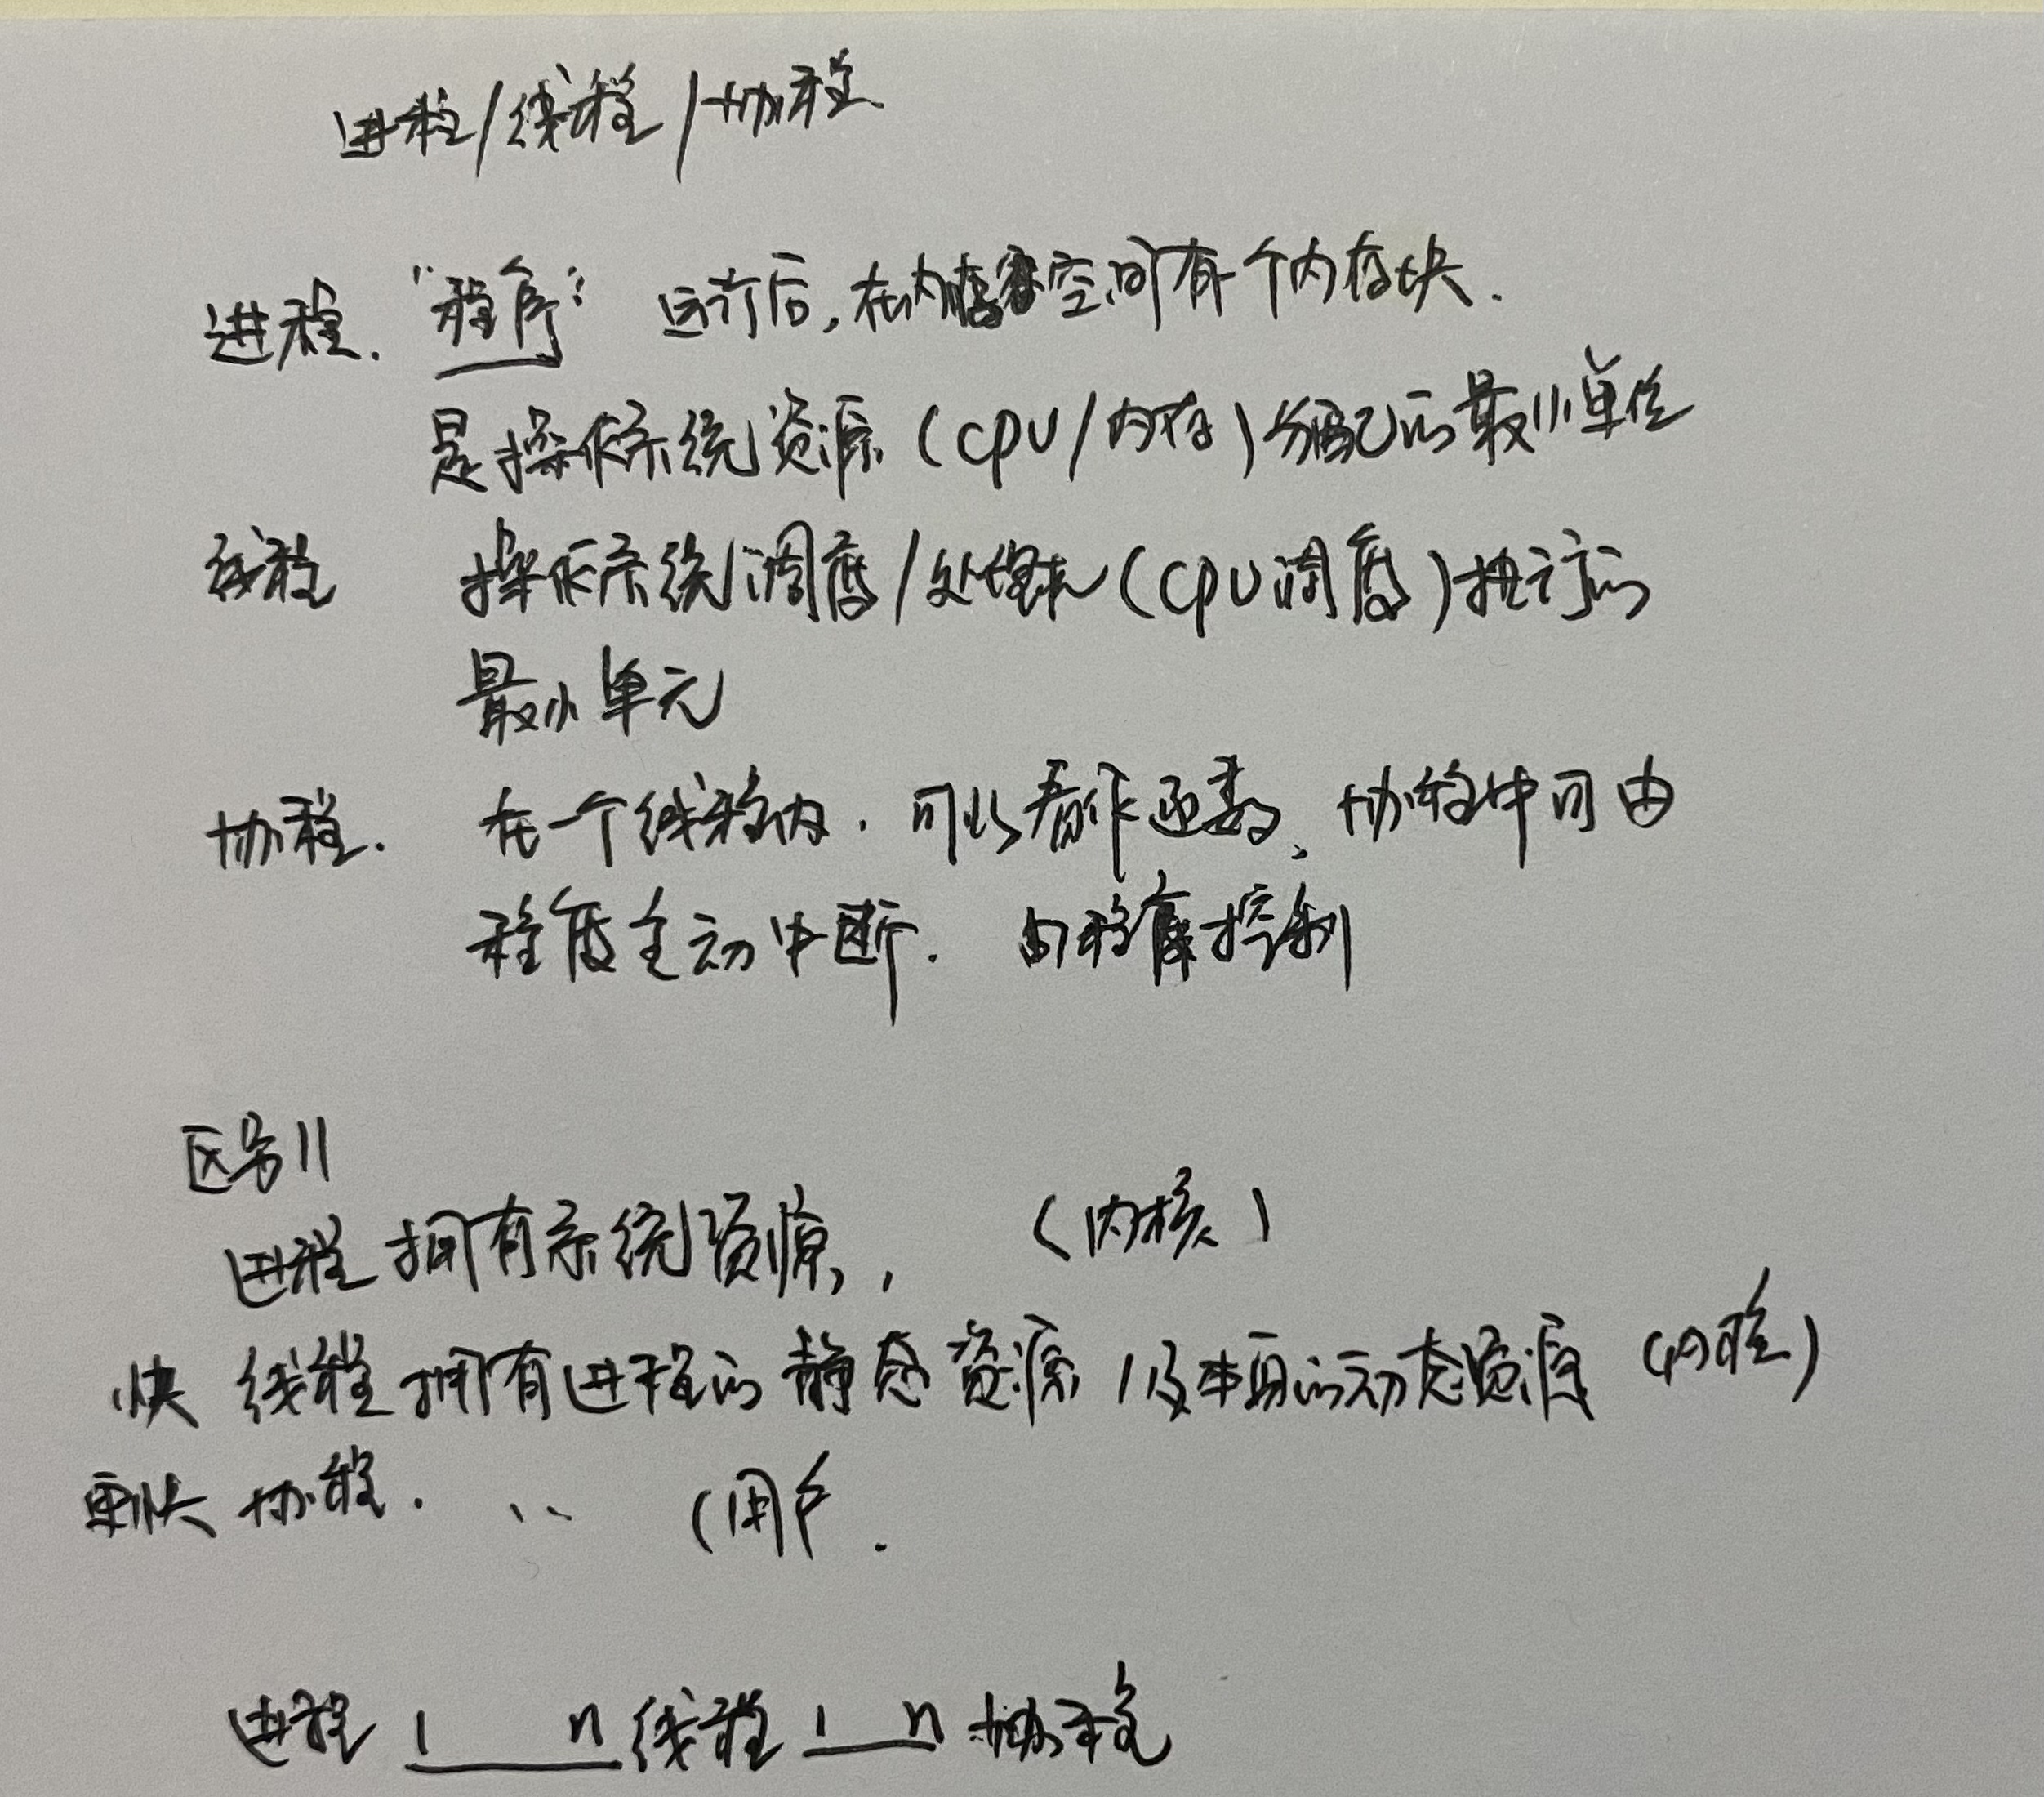 进程/线程/协程
进程. "程序" 运行后,在内存空间有个内存块.
是操作系统资源(CPU/内存)分配的最小单位
线程 操作系统调度/处理机(CPU调度)执行的
最小单元
协程. 在一个线程内. 可以看作函数、协程中可由
程度主动中断. 由程序控制
区别
进程拥有系统资源, (内核)
快 线程拥有进程的静态资源/及本身的动态资源 (内核)
更快 协程. .. (用户.
进程 1 n 线程 1 n 协程